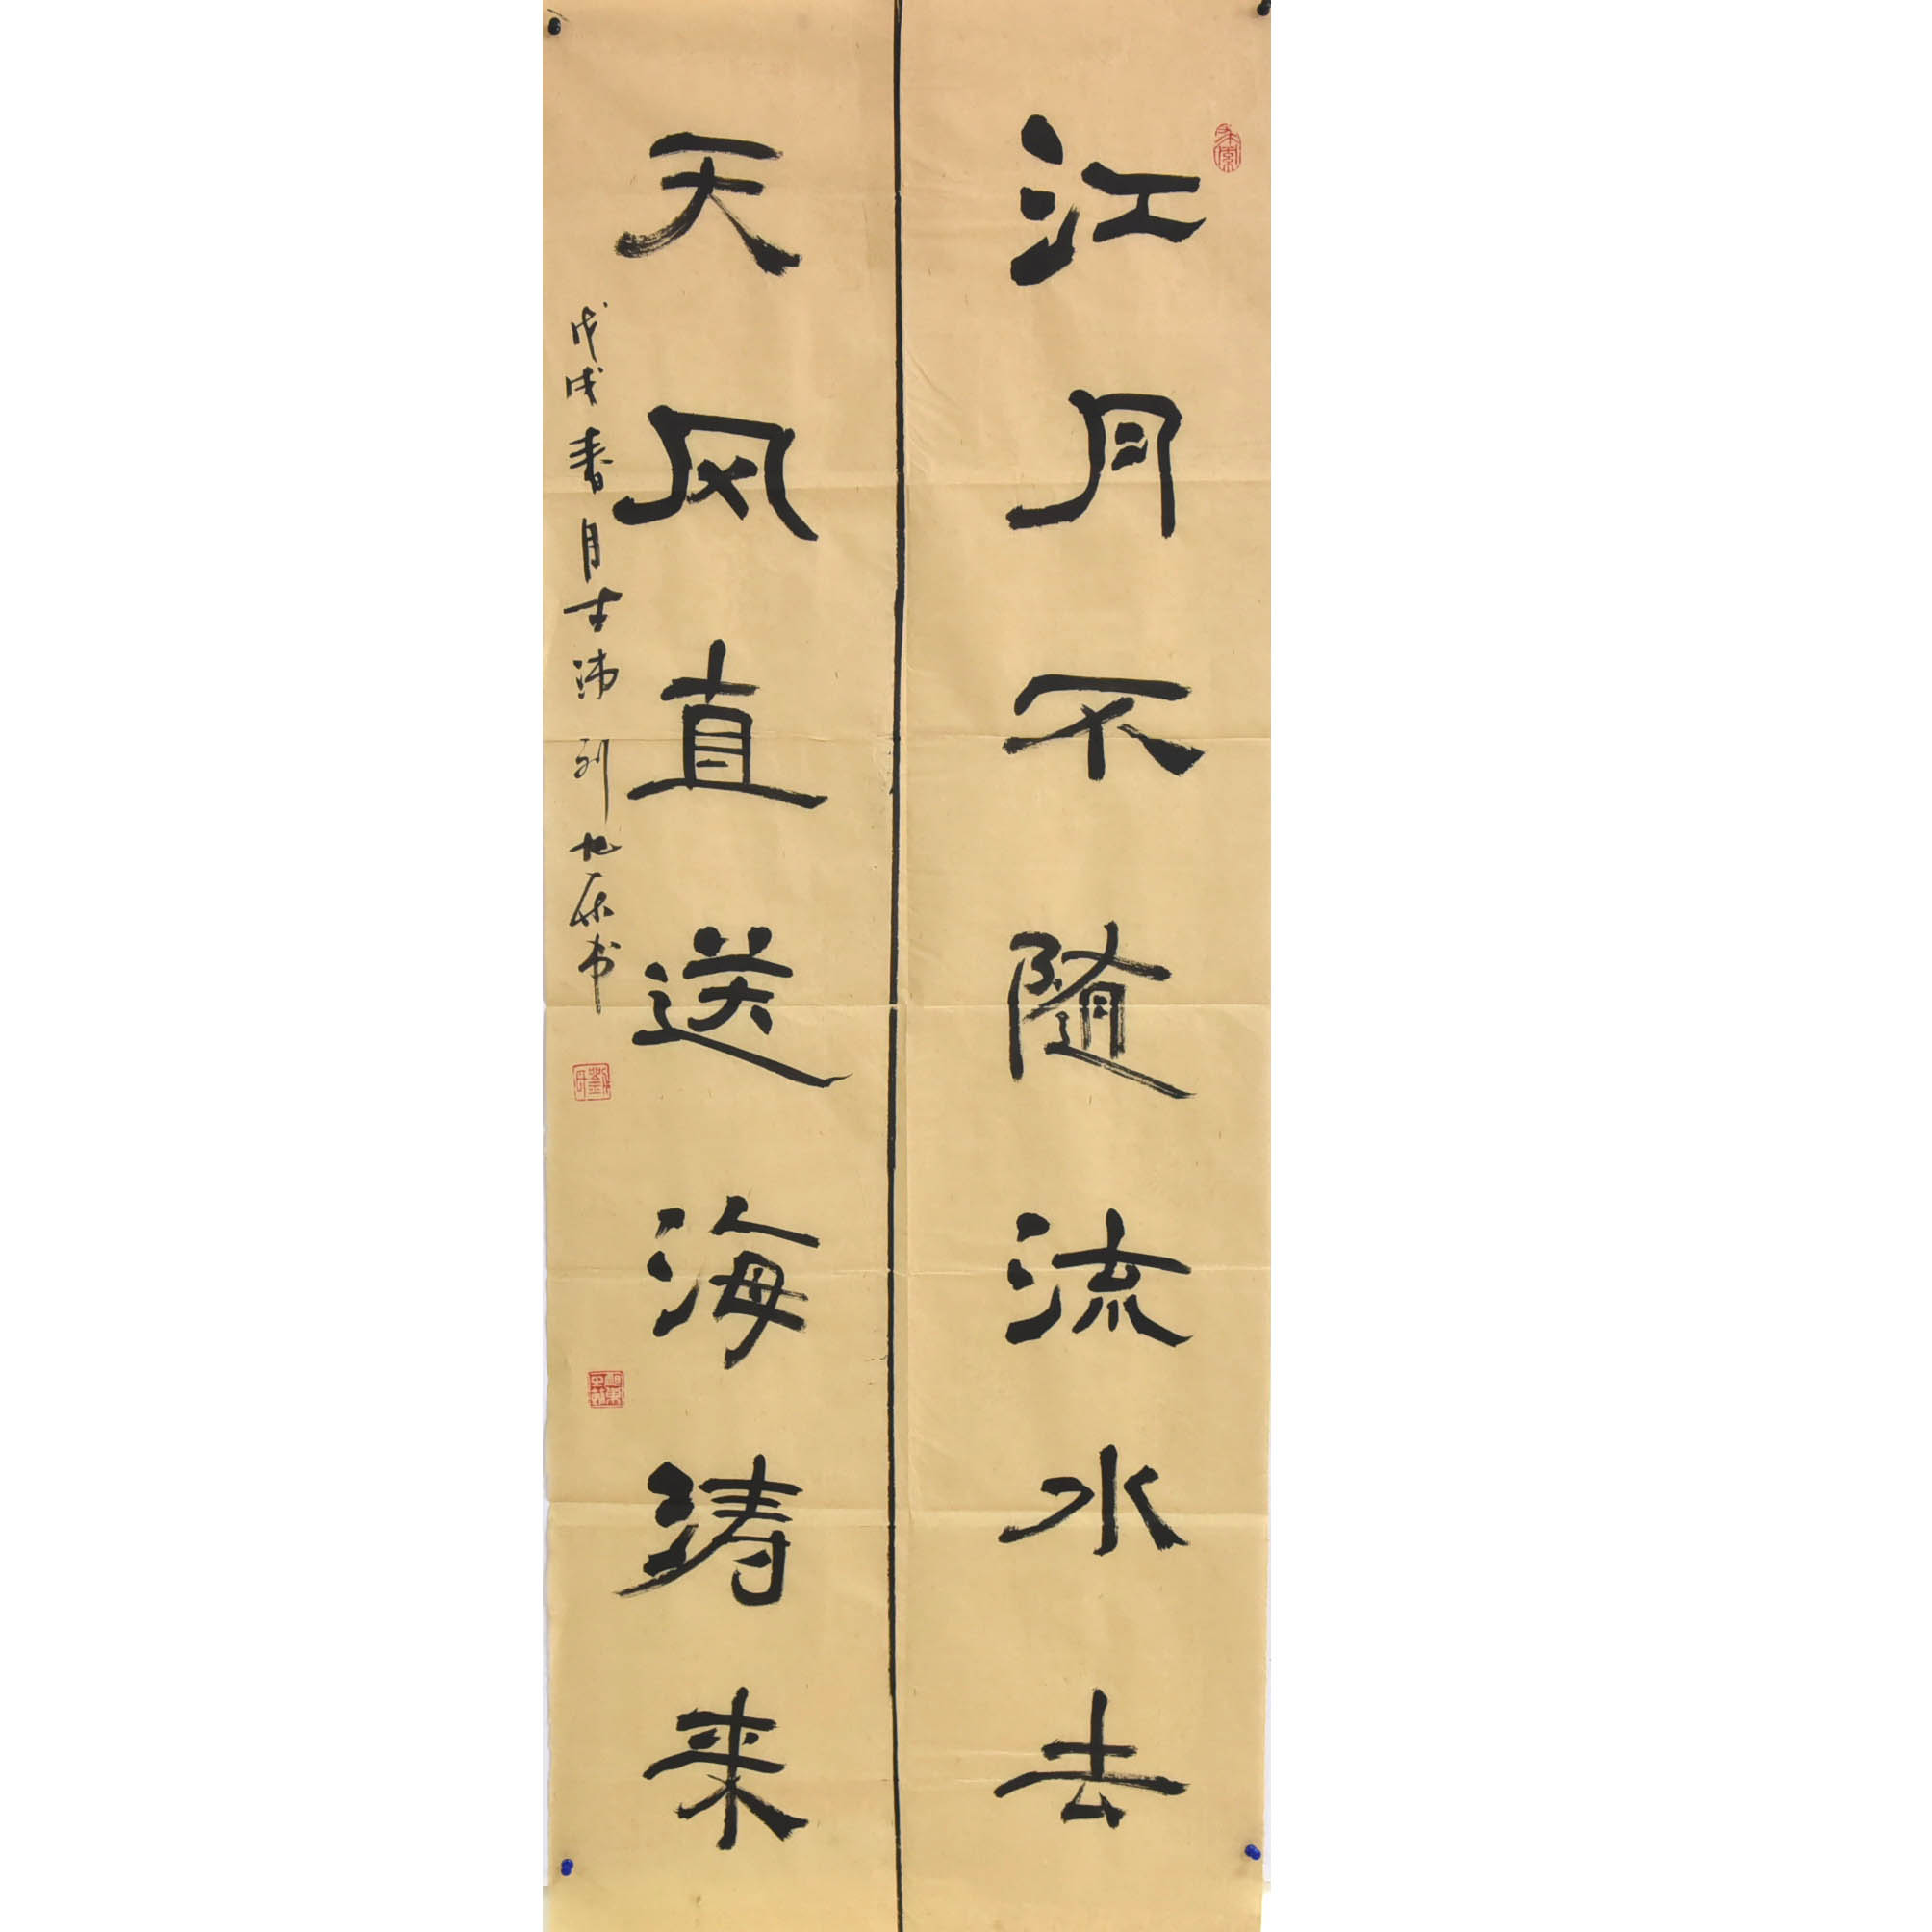 江月不随流水去
天风直送海涛来
戊戌春月古沛刘旭存书